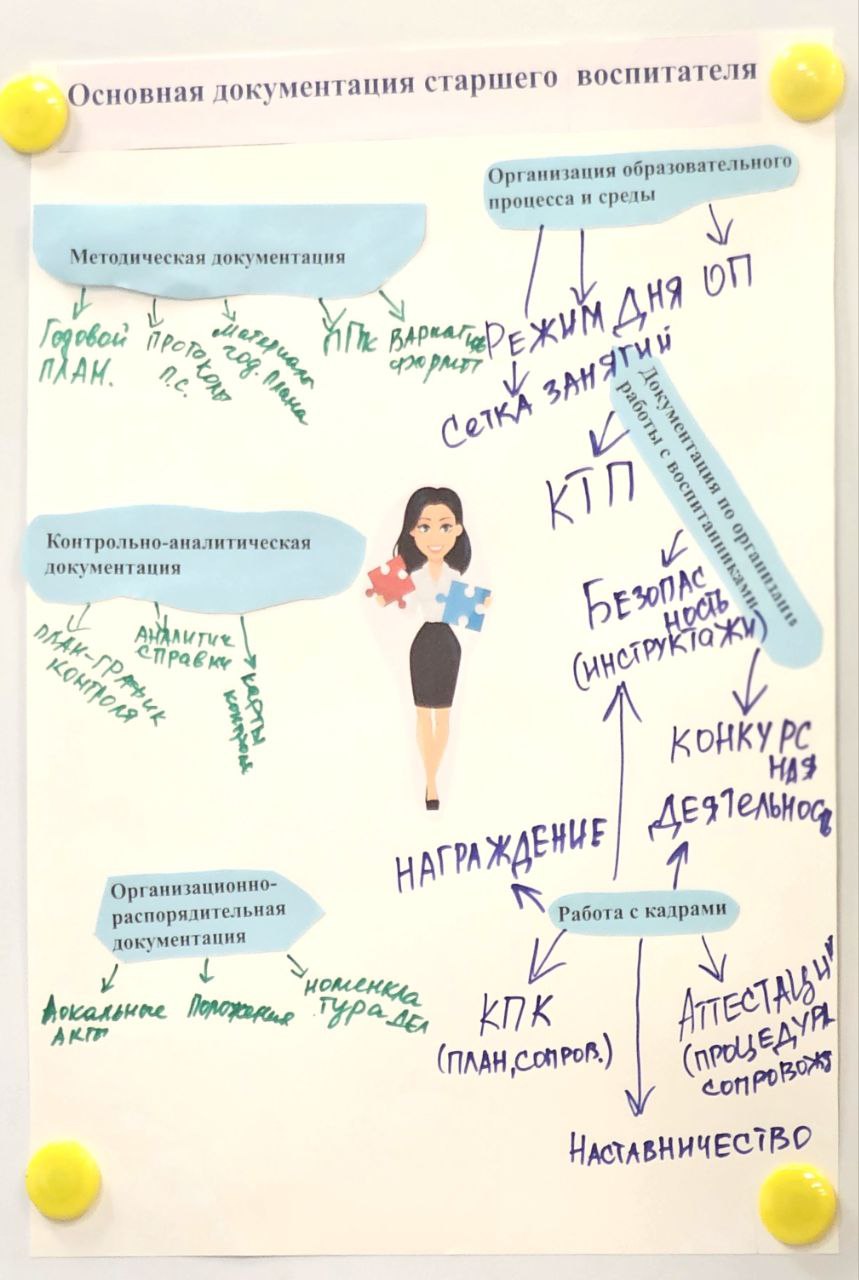 Основная документация старшего воспитателя
Организация образовательного
процесса и среды
РЕЖИМ ДНЯ
ОП
СЕТКА ЗАНЯТИЙ
Методическая документация
Годовой
ПЛАН.
ПРОТОКОЛЫ
П.С.
Материалы
год. плана
ППк
ВАРИАТИВ
формы
Документация по организации
работы с воспитанниками
КТП
БЕЗОПАС
НОСТЬ
(ИНСТРУКТАЖИ)
КОНКУРС
НАЯ
ДЕЯТЕЛЬНОСТЬ
Контрольно-аналитическая
документация
ПЛАН-ГРАФИК
КОНТРОЛЯ
АНАЛИТИЧ
СПРАВКИ
КАРТЫ
контроля
Организационно-
распорядительная
документация
Локальные
акты
Положения
номенкла
тура дел
Работа с кадрами
НАГРАЖДЕНИЕ
КПК
(ПЛАН, СОПРОВ.)
АТТЕСТАЦИ
(ПРОЦЕДУРА
СОПРОВОЖ
НАСТАВНИЧЕСТВО